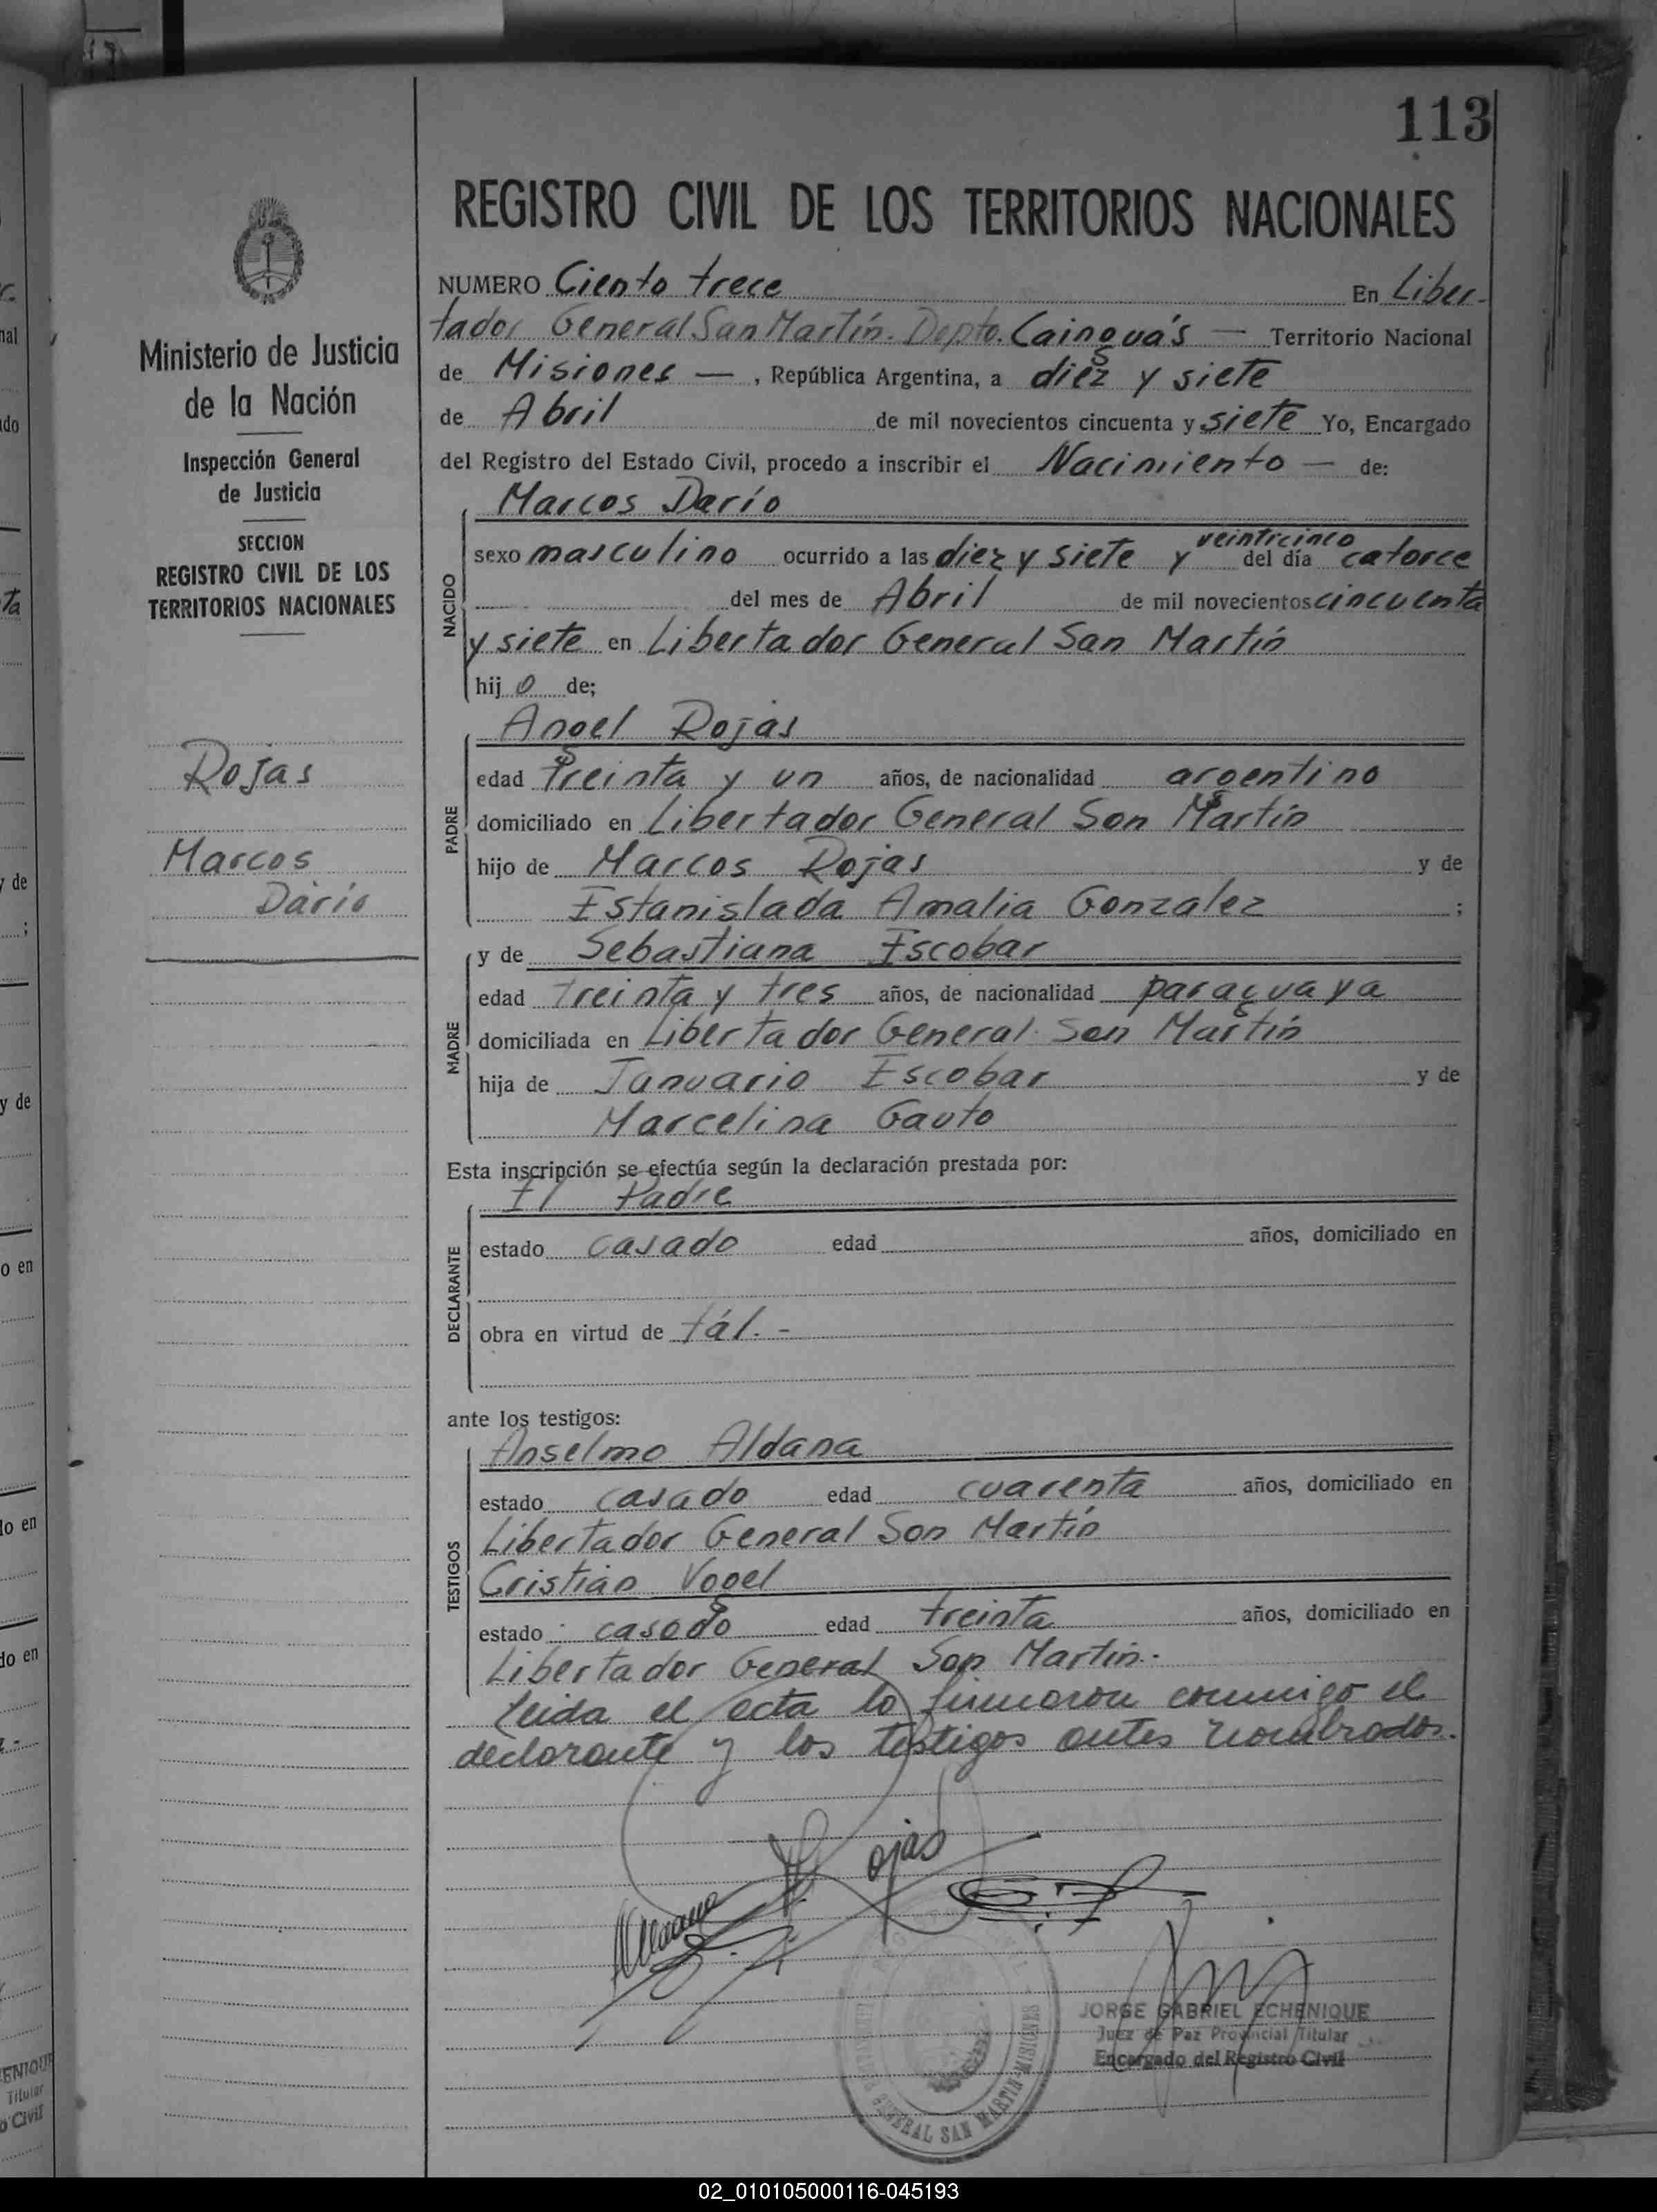 113
REGISTRO CIVIL DE LOS TERRITORIOS NACIONALES
Ministerio de Justicia
de la Nación
Inspección General
de Justicia
SECCION
REGISTRO CIVIL DE LOS
TERRITORIOS NACIONALES
Rojas
Marcos
Darío
NUMERO Ciento trece En Liber-
tador General San Martín. Depto. Cainguá's — Territorio Nacional
de Misiones — , República Argentina, a diez y siete
de Abril de mil novecientos cincuenta y siete Yo, Encargado
del Registro del Estado Civil, procedo a inscribir el Nacimiento — de:
NACIDO
Marcos Darío
sexo masculino ocurrido a las diez y siete y veinticinco del día catorce
del mes de Abril de mil novecientos cincuenta
y siete en Libertador General San Martín
hij o de;
PADRE
Angel Rojas
edad treinta y un años, de nacionalidad argentino
domiciliado en Libertador General San Martín
hijo de Marcos Rojas y de
Estanislada Amalia Gonzalez ;
MADRE
y de Sebastiana Escobar
edad treinta y tres años, de nacionalidad paraguaya
domiciliada en Libertador General San Martín
hija de Januario Escobar y de
Marcelina Gauto
Esta inscripción se efectúa según la declaración prestada por:
DECLARANTE
El Padre
estado casado edad años, domiciliado en
obra en virtud de tál. -
ante los testigos:
TESTIGOS
Anselmo Aldana
estado casado edad cuarenta años, domiciliado en
Libertador General San Martín
Cristian Vogel
estado casado edad treinta años, domiciliado en
Libertador General San Martín.-
Leida el acta la firmaron conmigo el
declarante y los testigos antes nombrados.
Rojas
Aldana
JORGE GABRIEL ECHENIQUE
Juez de Paz Provincial Titular
Encargado del Registro Civil
GENERAL SAN MARTIN-MISIONES
02_010105000116-045193